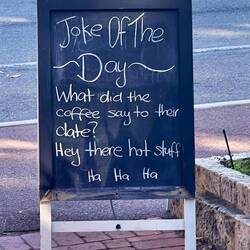 Joke Of The
~Day~
What did the
coffee say to their
date?
Hey there hot stuff
Ha Ha Ha